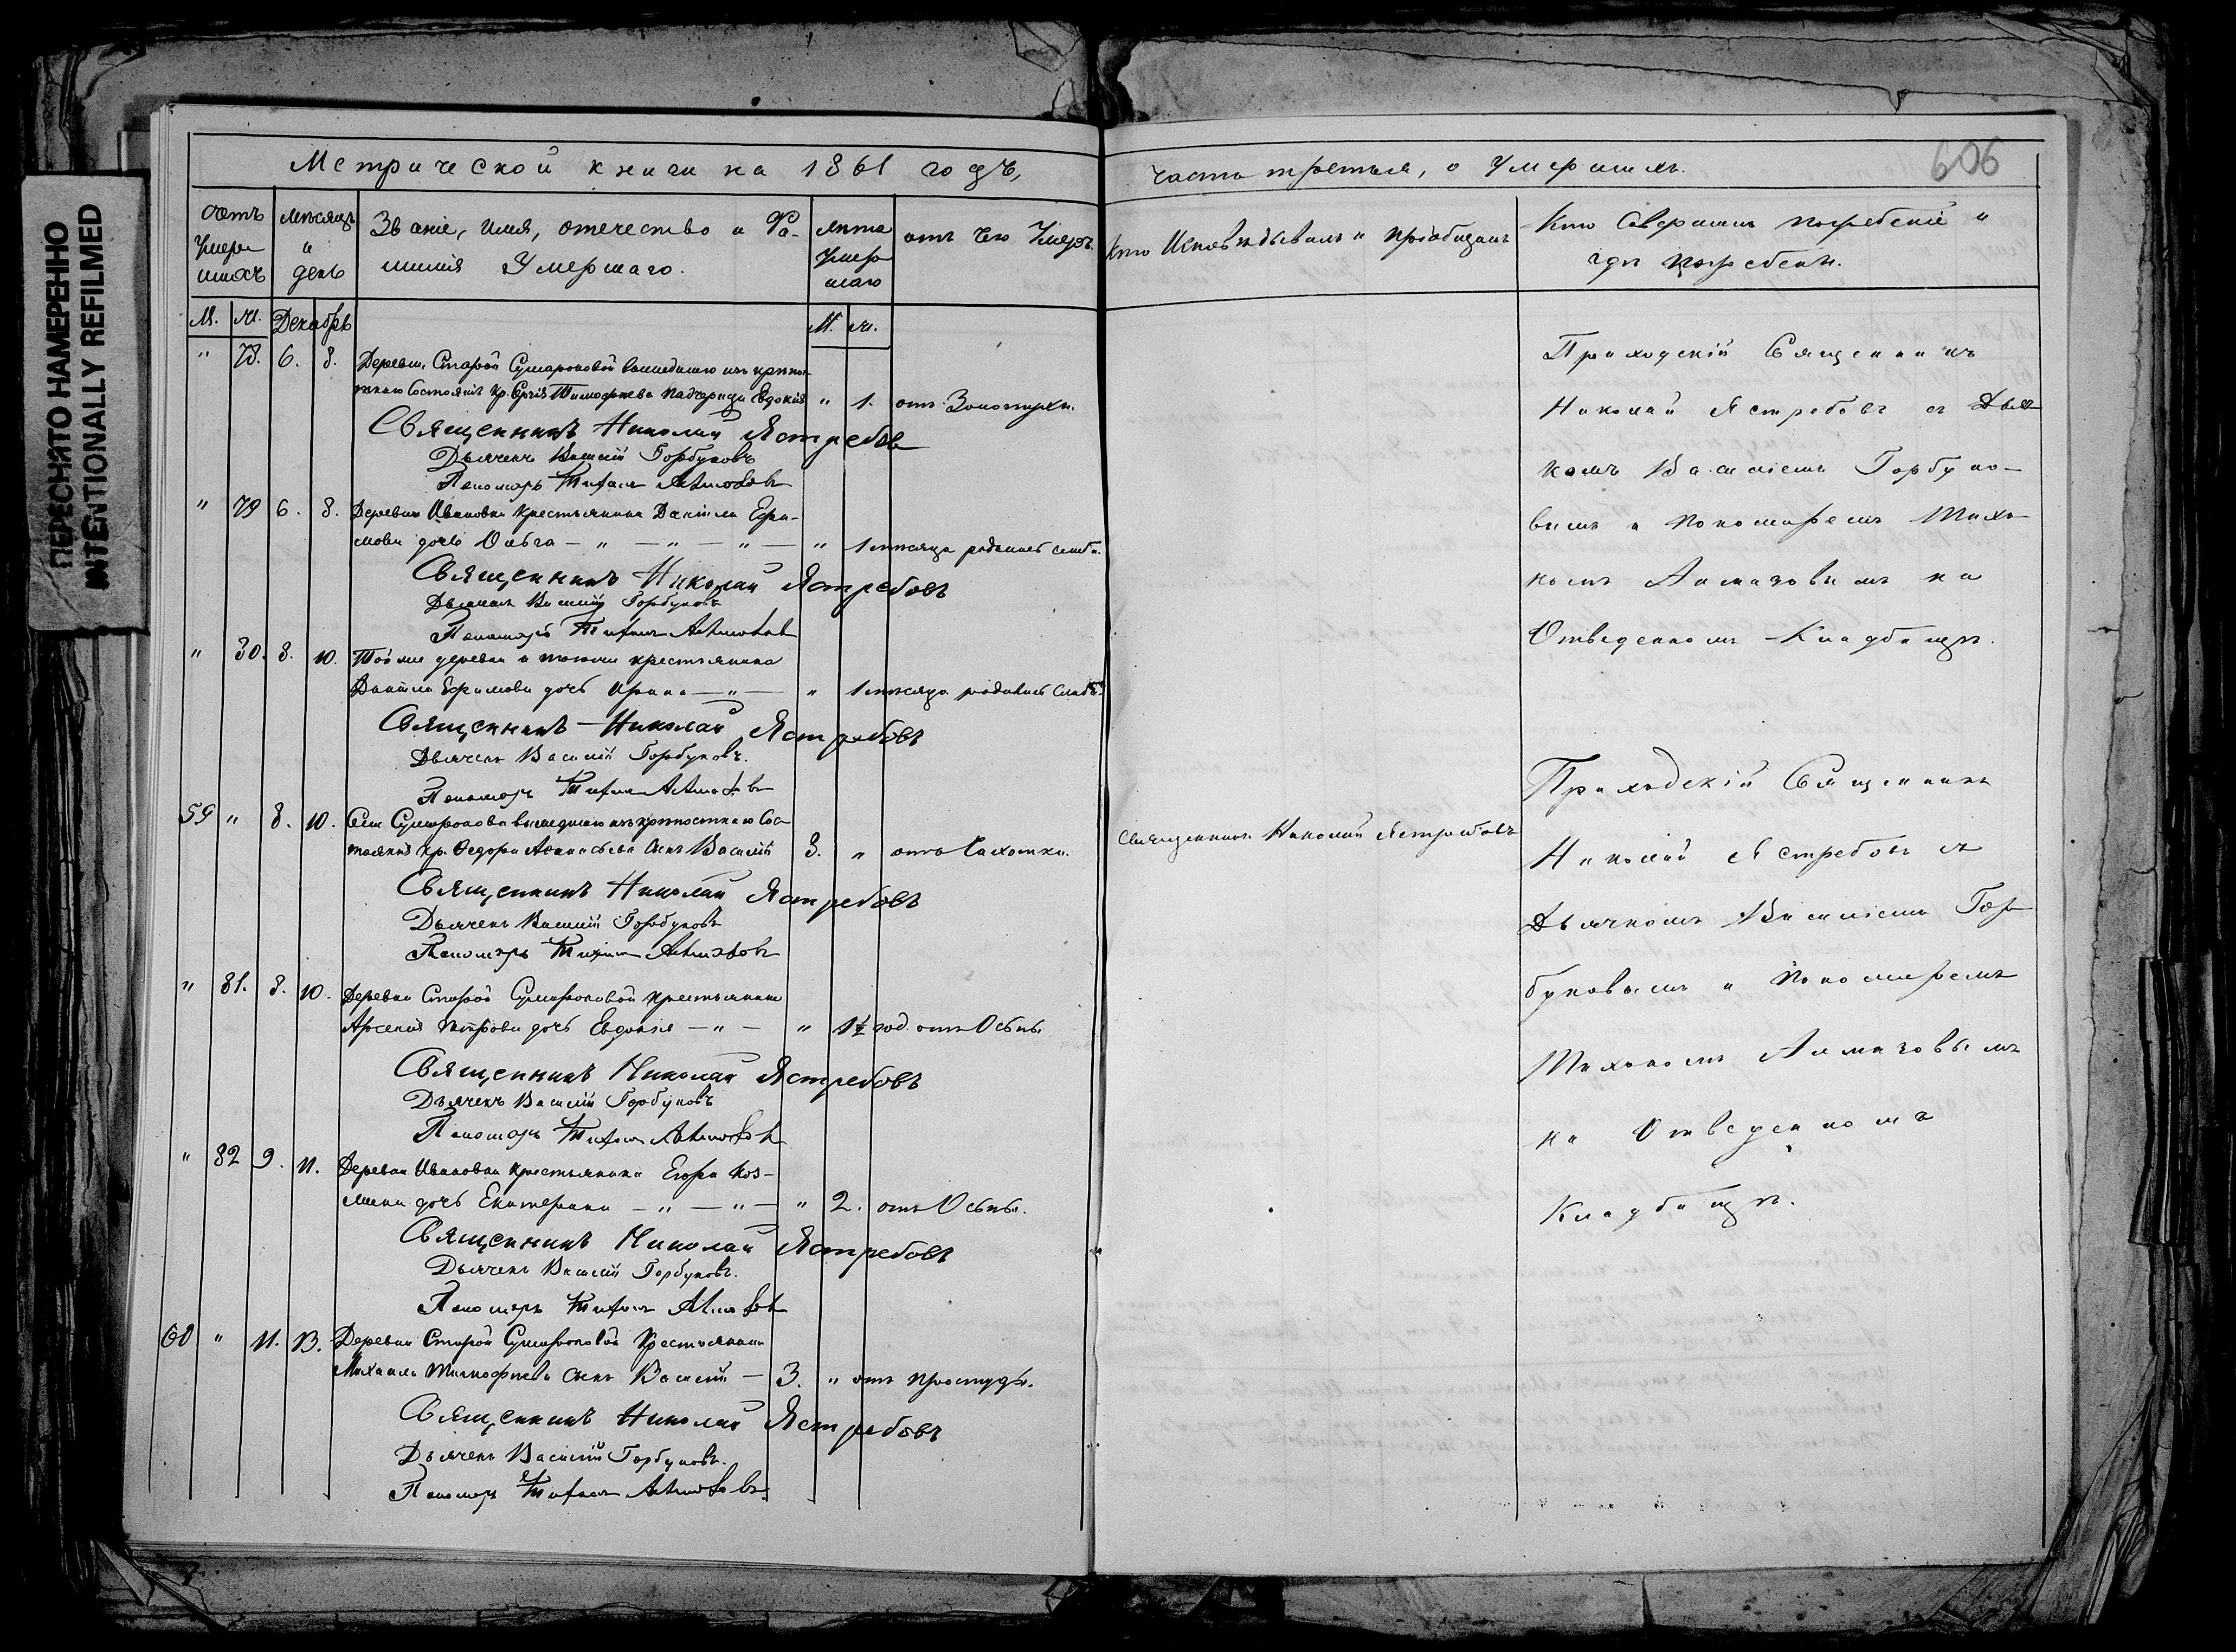 ПЕРЕСНЯТО НАМЕРЕННО
INTENTIONALLY REFILMED
Метрической книги на 1861 годъ,
счетъ умершихъ
мѣсяцъ и день
Званіе, имя, отечество и Фамилія Умершаго.
лѣта Умершаго
отъ чего Умеръ
М. Ж. Декабрь
М. Ж.
" 78. 6. 8. Деревни Старой Сумароковой вышедшаго изъ крѣпо-
стнаго Состоянія кр. Сергія Тимофѣева Падчерица Евдокія " 1. отъ Золотухи.
Священникъ Николай Ястребов
Дьячекъ Василій Горбуновъ
Пономарь Тихонъ Алмазовъ
" 79 6. 8. Деревни Ивановки Крестьянина Даніила Ефи-
мова дочь Ольга — " — " — " — " 1 мѣсяца родилась слаба.
Священникъ Николай Ястребовъ
Дьячекъ Василій Горбуновъ
Пономарь Тихонъ Алмазовъ
" 80. 8. 10. Той же деревни и того же крестьянина
Даніила Ефимова дочь Ирина — " — " 1 мѣсяца родилась слаба.
Священникъ Николай Ястребовъ
Дьячекъ Василій Горбуновъ.
Пономарь Тихонъ Алмазовъ
59 " 8. 10. Села Сумарокова вышедшаго изъ крѣпостнаго Сос-
тоянія кр. Ѳедора Аѳанасьева сынъ Василій 8. " отъ Чахотки.
Священникъ Николай Ястребовъ
Дьячекъ Василій Горбуновъ
Пономарь Тихонъ Алмазовъ
" 81. 8. 10. Деревни Старой Сумароковой крестьянина
Арсенія Петрова дочь Евдокія — " — " 1½ год. отъ Оспы
Священникъ Николай Ястребовъ
Дьячекъ Василій Горбуновъ
Пономарь Тихонъ Алмазовъ
" 82 9. 11. Деревни Ивановки крестьянина Егора Коз-
мина дочь Екатерина — " — " — " 2. отъ Оспы.
Священникъ Николай Ястребовъ
Дьячекъ Василій Горбуновъ.
Пономарь Тихонъ Алмазовъ
60 " 11. 13. Деревни Старой Сумароковой Крестьянина
Михаила Тимофѣева сынъ Василій — 3. " отъ простуды.
Священникъ Николай Ястребовъ
Дьячекъ Василій Горбуновъ.
Пономарь Тихонъ Алмазовъ
часть третья, о Умершихъ.
606
Кто Исповѣдывалъ и пріобщалъ
Кто Совершалъ погребеніе и
гдѣ погребенъ.
Приходскій Священникъ
Николай Ястребовъ съ Дьяч-
комъ Василіемъ Горбуно-
вымъ и Пономаремъ Тихо-
номъ Алмазовымъ на
Отведенномъ Кладбищѣ.
Священникъ Николай Ястребовъ
Приходскій Священникъ
Николай Ястребовъ съ
Дьячкомъ Василіемъ Гор-
буновымъ и Пономаремъ
Тихономъ Алмазовымъ
на Отведенномъ
Кладбищѣ.